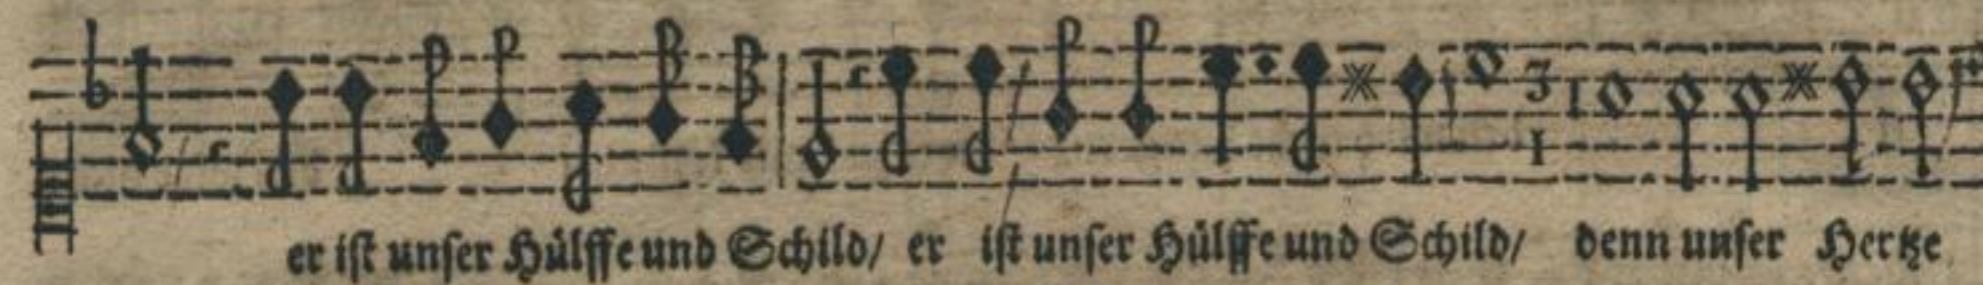 er iſt unſer Hülffe und Schild/ er iſt unſer Hülffe und Schild/ denn unſer Hertze